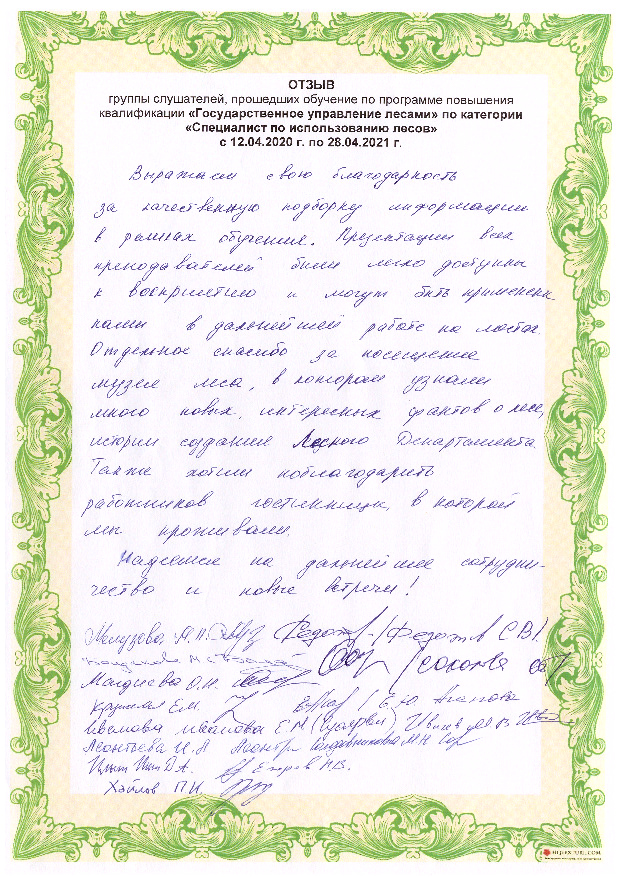 ОТЗЫВ
группы слушателей, прошедших обучение по программе повышения
квалификации «Государственное управление лесами» по категории
«Специалист по использованию лесов»
с 12.04.2020 г. по 28.04.2021 г.
Выражаем свою благодарность
за качественную подборку информации
в рамках обучения. Презентации всех
преподавателей были легко доступны
к восприятию и могут быть применены
нами в дальнейшей работе на местах.
Отдельное спасибо за посещение
музея леса, в котором узнали
много новых, интересных фактов о лесе,
истории создания Лесного Департамента.
Также хотим поблагодарить
работников гостиницы, в которой
мы проживали.
Надеемся на дальнейшее сотрудни-
чество и новые встречи!
Федотов С.В.
Соколова
Магдиева О.Н.
Е.Ю. Агапова
Иванова Е.М.
Леонтьева И.А.
Егоров Н.В.
Хайлов П.И.